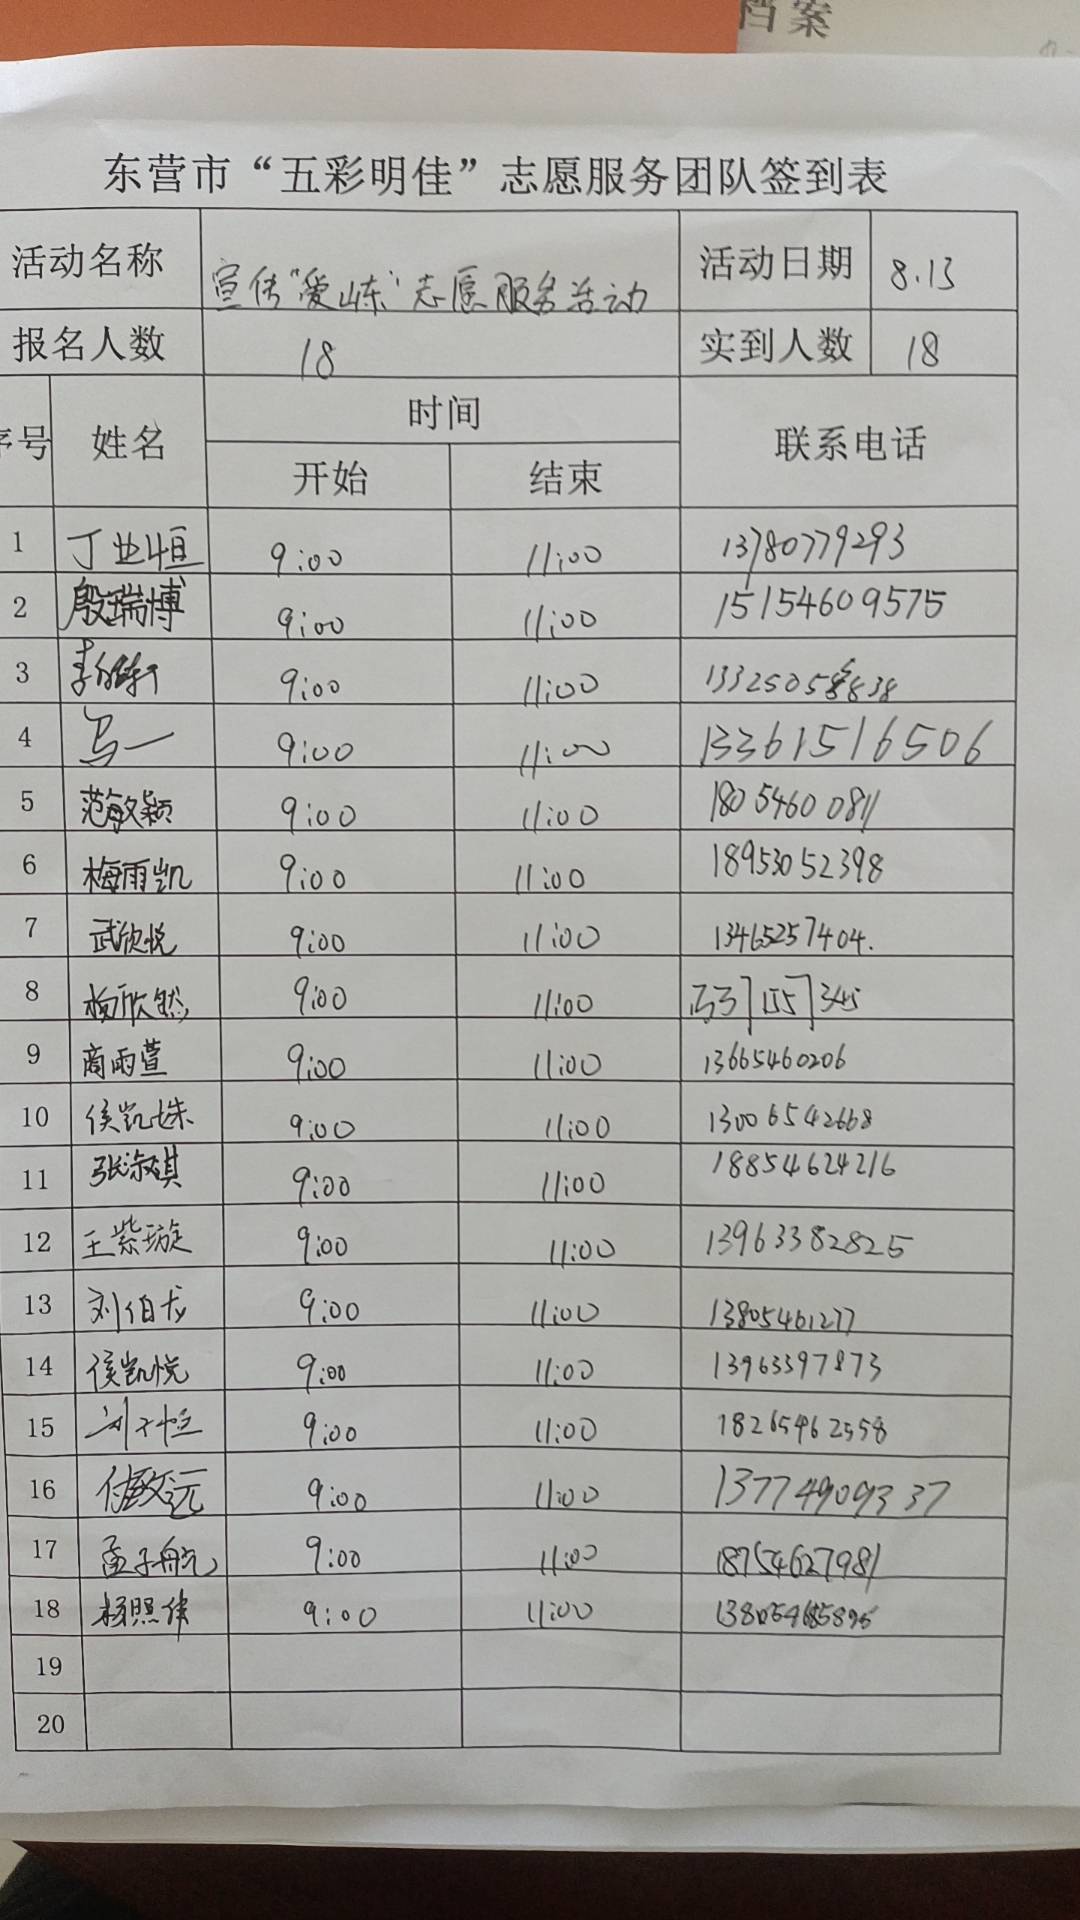 档案
东营市“五彩明佳”志愿服务团队签到表
活动名称 宣传“爱山东”志愿服务活动 活动日期 8.13
报名人数 18 实到人数 18
序号 姓名 时间 联系电话
开始 结束
1 丁业恒 9:00 11:00 13780779293
2 殷瑞博 9:00 11:00 15154609575
3 9:00 11:00
4 马一 9:00 11:00 13361516506
5 范敏颖 9:00 11:00 18054600811
6 梅雨凯 9:00 11:00 18953052398
7 武欣悦 9:00 11:00 13465257404.
8 杨欣然 9:00 11:00
9 商雨萱 9:00 11:00 13665460206
10 侯凯姝 9:00 11:00 13006542668
11 张淑琪 9:00 11:00 18854624216
12 王紫璇 9:00 11:00 13963382825
13 刘伯 9:00 11:00 13805461277
14 侯凯悦 9:00 11:00 13963397873
15 刘子恒 9:00 11:00 18265462558
16 9:00 11:00 13774909337
17 孟子航 9:00 11:00 18754627981
18 杨照伟 9:00 11:00
19
20